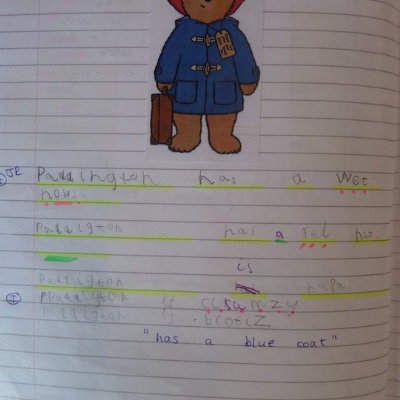 JR Paddington has a wet.
nows.
paddington has a red ho.
is
paddington
ppaddington is clumzy
paddington is
"has a blue coat"